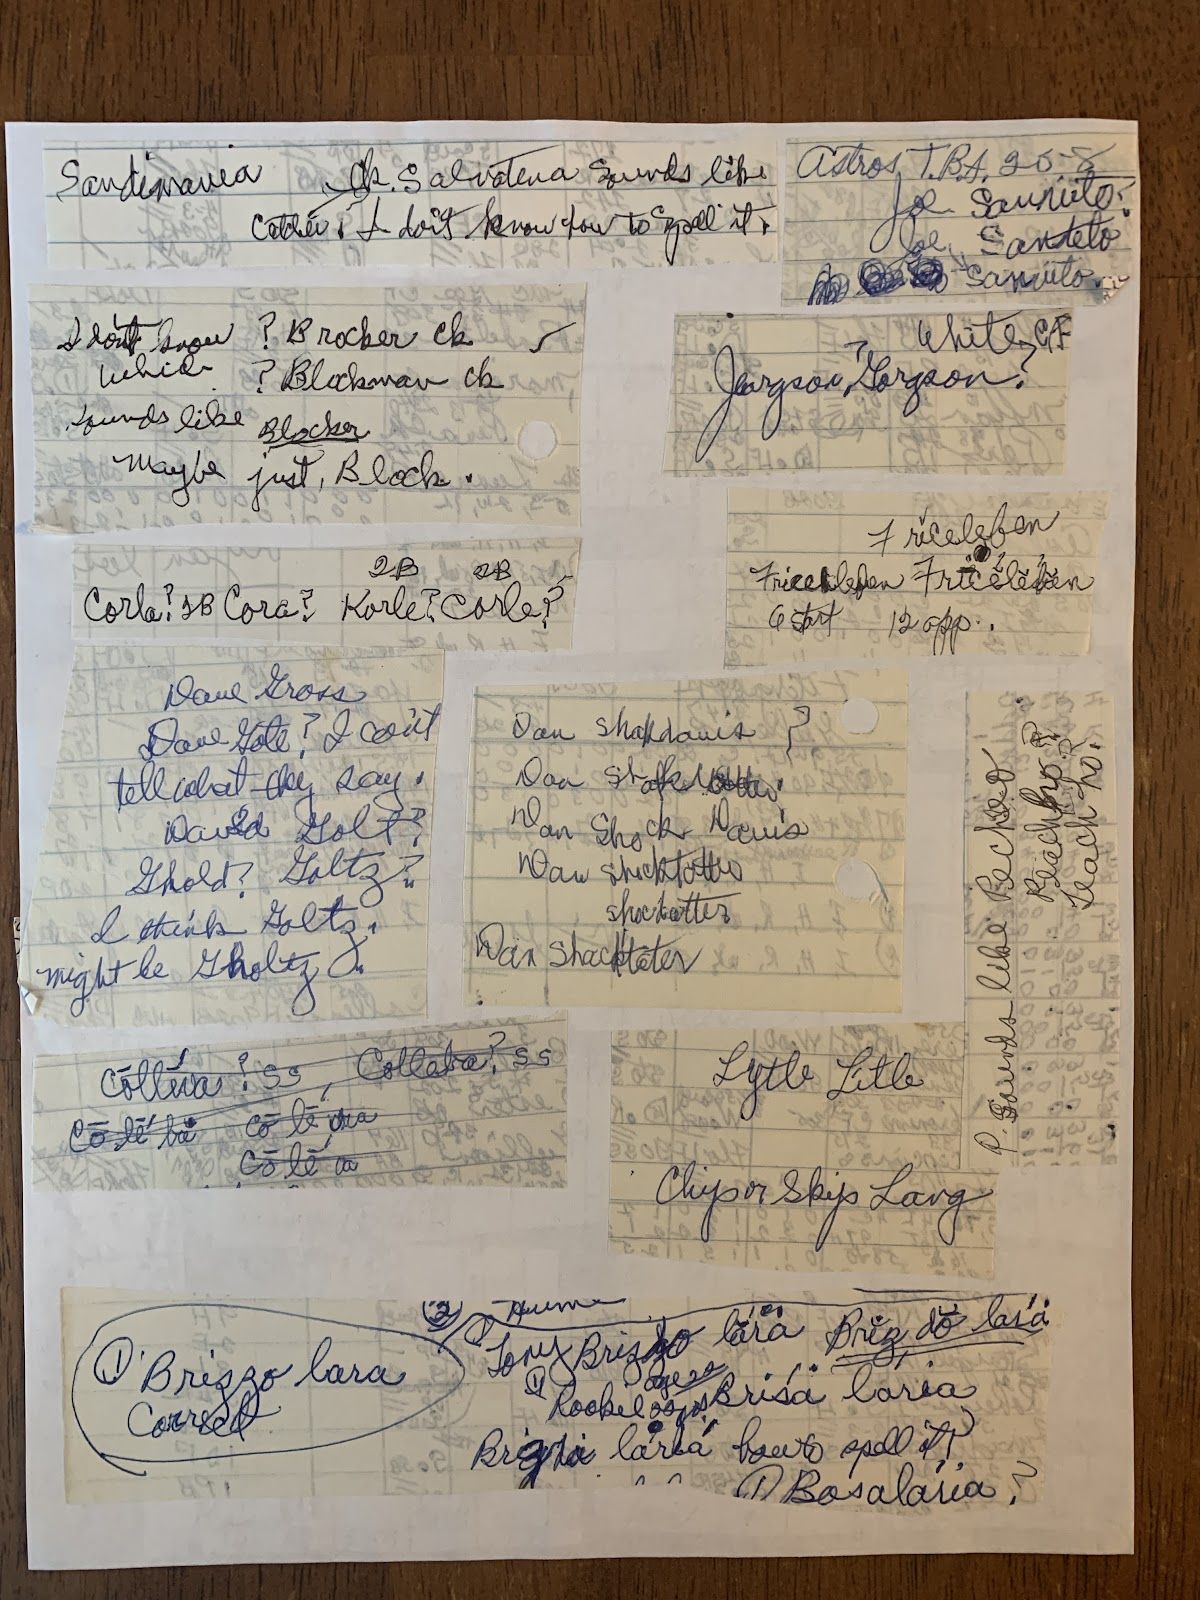 Sandimania
Ck. Salvatena sounds like
I don't know how to spell it.
Astros T.B.A. 20-8
Joe Sannuto.
Joe, Sandeto
Sannuto.
I don't know ? Brocker ck
which ? Blockman ck
sounds like Blocker
Maybe just, Block.
White CF
Jorgson, Gorgson?
Friceleben
Friceleben
6 start 12 opp.
2B 2B
Corla? 2B Cora? Korle? Corle?
Dave Gross
Dave Gote? I can't
tell what they say.
David Golt?
Ghold? Goltz?
I think Goltz,
might be Gholtz.
Dan Shakdavis ?
Dan
Dan Shock Davis
Dan Shecktotter
shockotter
Dan Shackteter
P. Sounds like Peckso
Beachho?
Leachho?
Collēva? SS, Colleba? SS
Cō lē' ba Cō lē va
Cō lē va
Lytle Litle
Chip or Skip Lang
① Brizzo lara
Correct
② Hume
Tony Brizzo lara Briz dō lara
Brisa laria
laria how to spell it?
① Bosalaria?